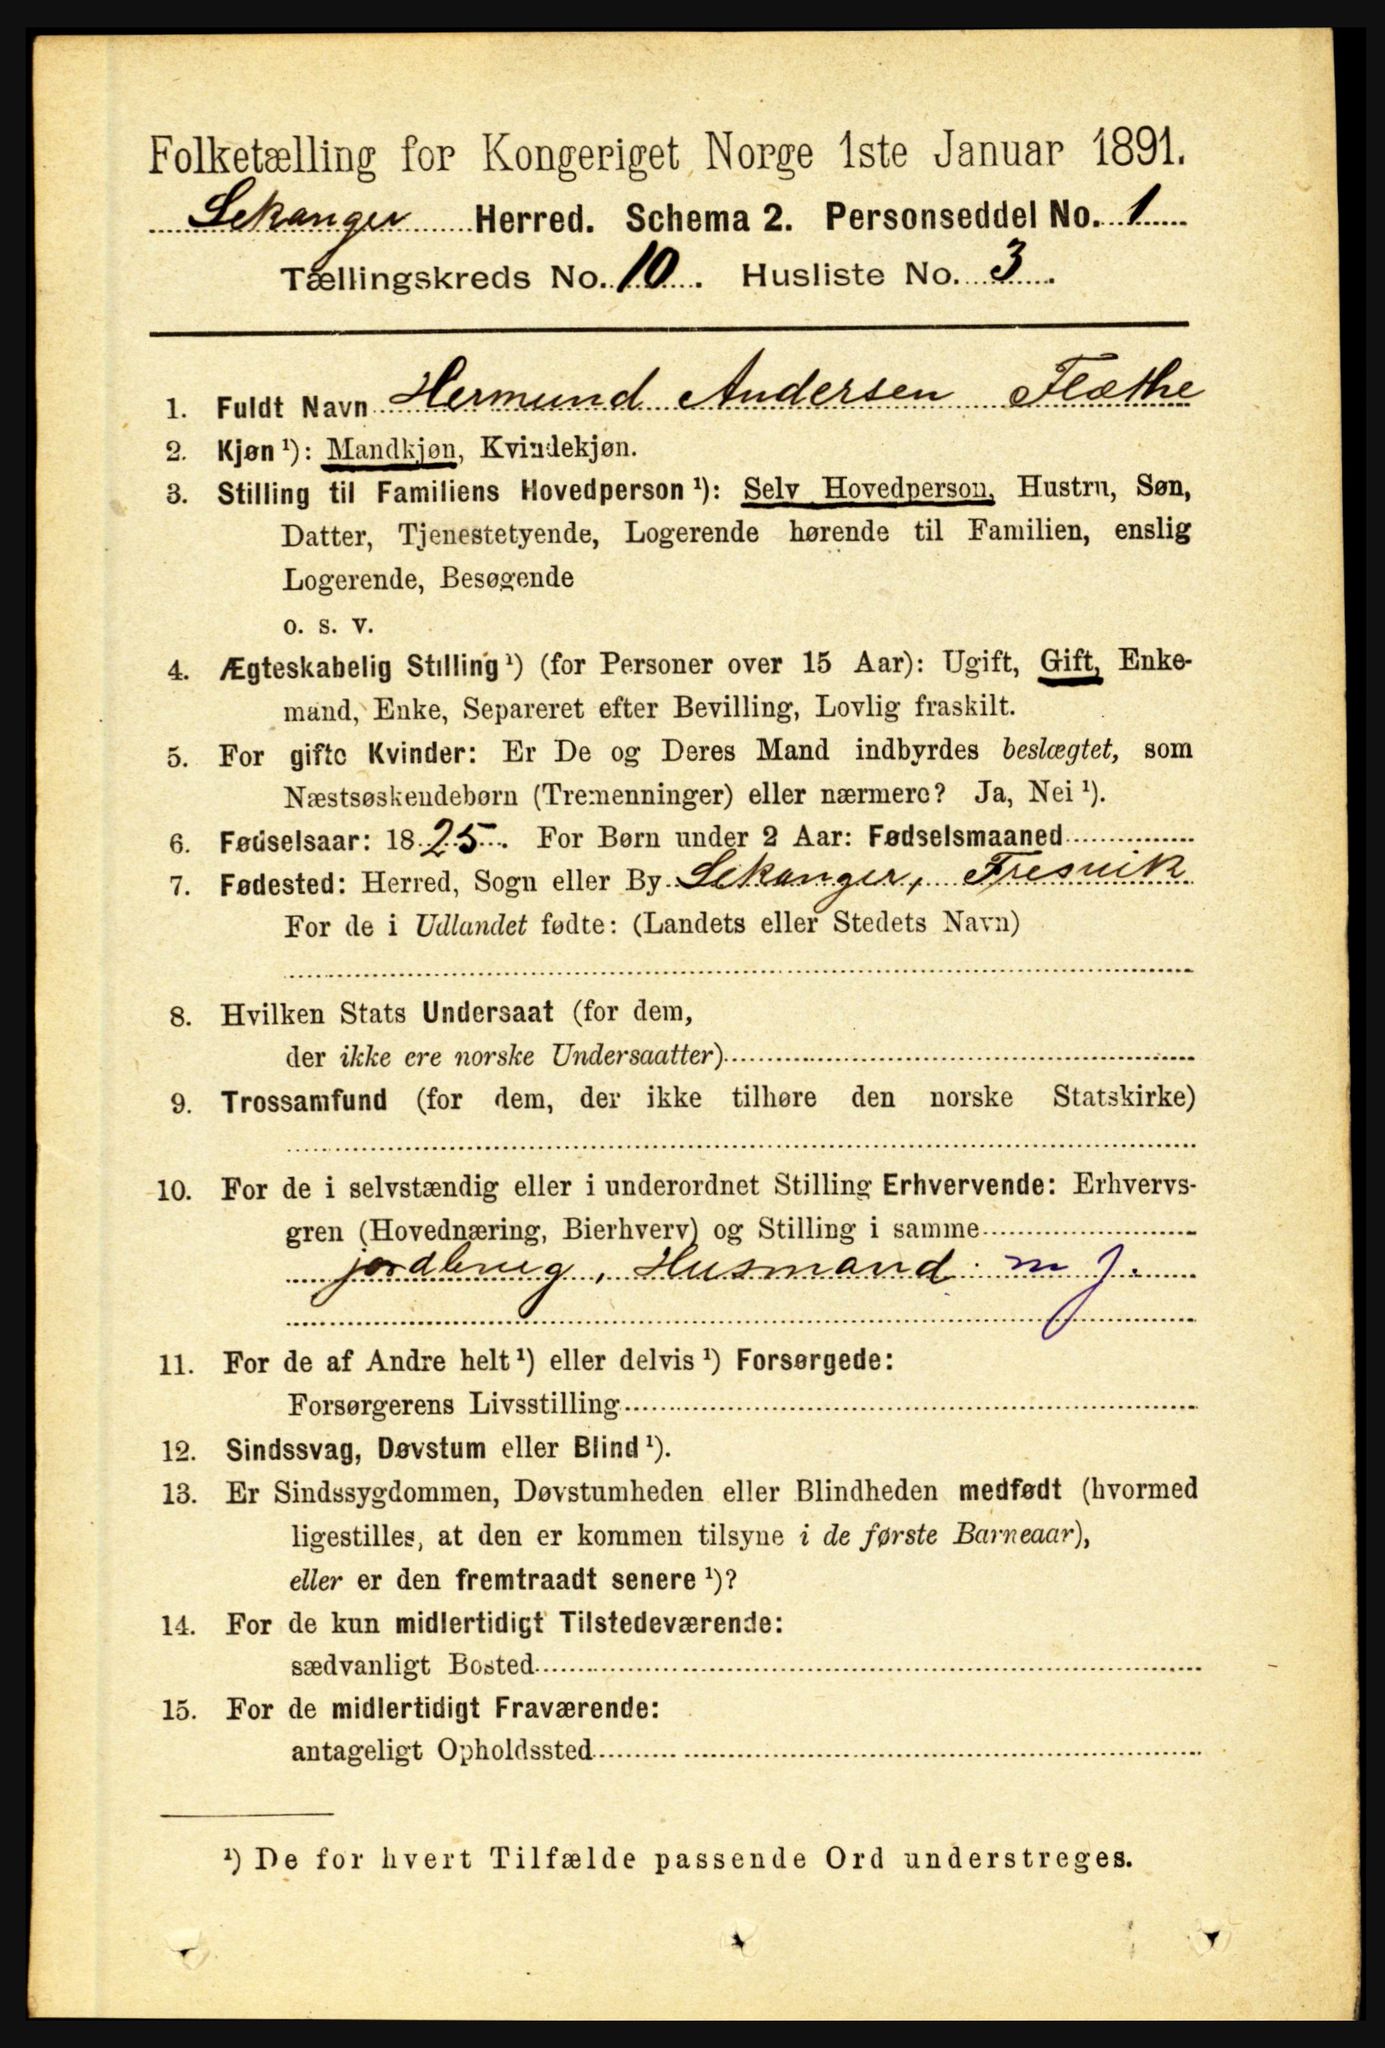 Folketælling for Kongeriget Norge 1ste Januar 1891.
Lekanger Herred. Schema 2. Personseddel No. 1
Tællingskreds No. 10. Husliste No. 3.
1. Fuldt Navn Hermund Andersen Flæthe
2. Kjøn ¹): Mandkjøn, Kvindekjøn.
3. Stilling til Familiens Hovedperson ¹): Selv Hovedperson, Hustru, Søn,
Datter, Tjenestetyende, Logerende hørende til Familien, enslig
Logerende, Besøgende
o. s. v.
4. Ægteskabelig Stilling ¹) (for Personer over 15 Aar): Ugift, Gift, Enke-
mand, Enke, Separeret efter Bevilling, Lovlig fraskilt.
5. For gifte Kvinder: Er De og Deres Mand indbyrdes beslægtet, som
Næstsøskendebørn (Tremenninger) eller nærmere? Ja, Nei ¹).
6. Fødselsaar: 1825. For Børn under 2 Aar: Fødselsmaaned
7. Fødested: Herred, Sogn eller By Lekanger, Fresvik
For de i Udlandet fødte: (Landets eller Stedets Navn)
8. Hvilken Stats Undersaat (for dem,
der ikke ere norske Undersaatter)
9. Trossamfund (for dem, der ikke tilhøre den norske Statskirke)
10. For de i selvstændig eller i underordnet Stilling Erhvervende: Erhvervs-
gren (Hovednæring, Bierhverv) og Stilling i samme
jordbrug, Husmand m j.
11. For de af Andre helt ¹) eller delvis ¹) Forsørgede:
Forsørgerens Livsstilling
12. Sindssvag, Døvstum eller Blind ¹).
13. Er Sindssygdommen, Døvstumheden eller Blindheden medfødt (hvormed
ligestilles, at den er kommen tilsyne i de første Barneaar),
eller er den fremtraadt senere ¹)?
14. For de kun midlertidigt Tilstedeværende:
sædvanligt Bosted
15. For de midlertidigt Fraværende:
antageligt Opholdssted
¹) De for hvert Tilfælde passende Ord understreges.